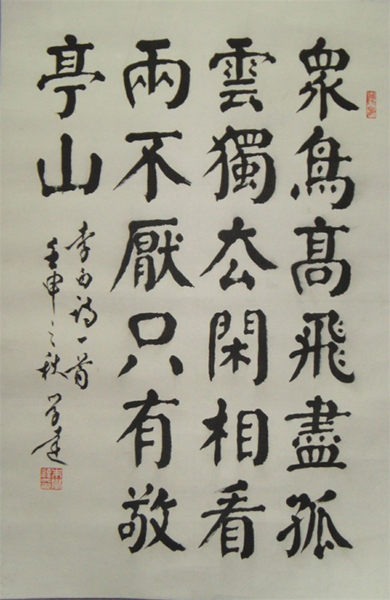 眾鳥高飛盡孤
雲獨去閑相看
兩不厭只有敬
亭山
李白詩一首
壬申之秋